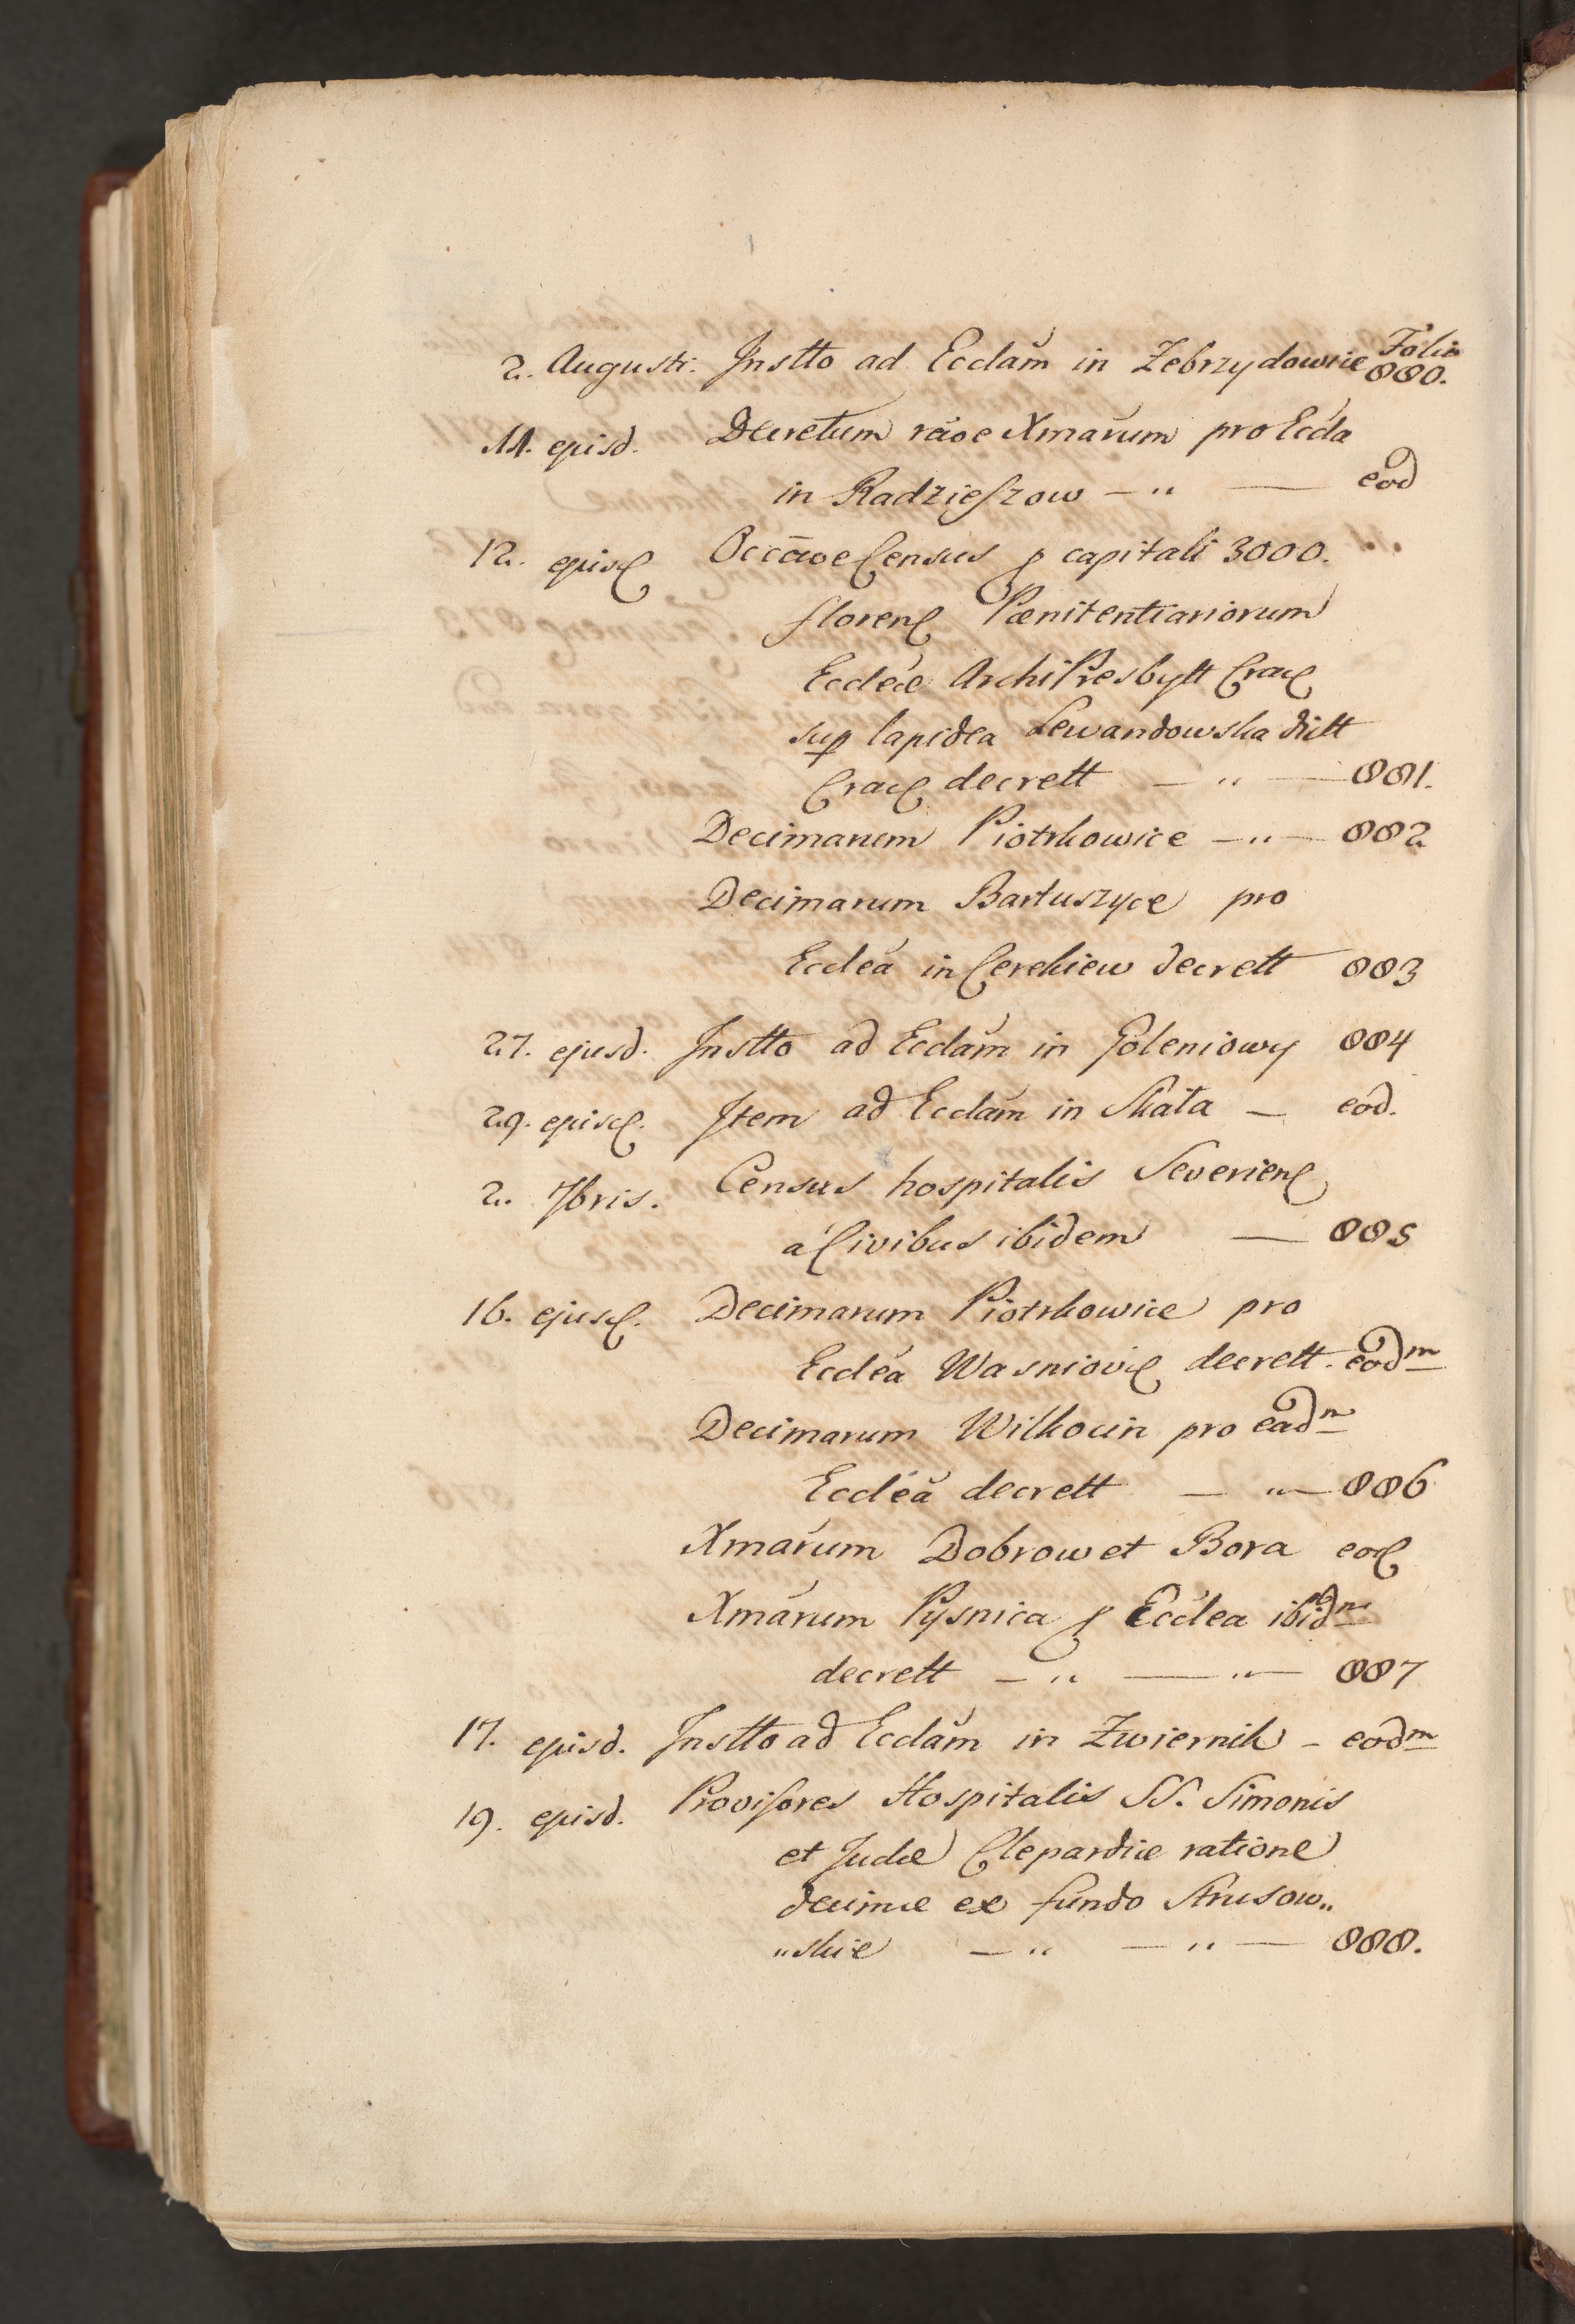 Folio
2. Augusti. Jnstto ad Ecclam in Zebrzydowice 880.
11. ejusd. Decretum raoe Xmarum pro Eccla
in Radzieszow — " — eod
12. ejusd Occaoe Census p capitali 3000.
floren Pœnitentiariorum
Eccleæ ArchiPresbytt Crac
sup lapidea Lewandowska dictt
Crac decrett — " — 881.
Decimarum Piotrkowice — " — 882
Decimarum Bartuszyce pro
Ecclea in Cerekiew decrett 883
27. ejusd. Jnstto ad Ecclam in Goleniowy 884
29. ejusd. Item ad Ecclam in Skała — eod.
2. 7bris. Census hospitalis Severien
a Civibus ibidem — 885
16. ejusd. Decimarum Piotrkowice pro
Ecclea Wasniovic decrett. eodm
Decimarum Wilkocin pro eadm
Ecclea decrett — " — 886
Xmarum Dobrow et Bora eod
Xmarum Pysnica p Ecclea ibidm
decrett — " — " — 887
17. ejusd. Jnstto ad Ecclam in Zwiernik — eodm
19. ejusd. Provisores Hospitalis SS. Simonis
et Judæ Clepardiæ ratione
decimæ ex fundo Strusow„
„skie — " — " — 888.